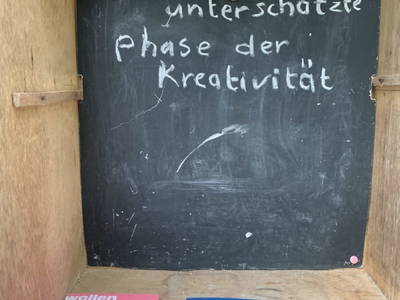 unterschätzte
Phase der
Kreativität
wollen